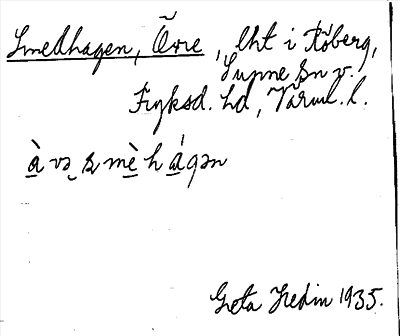 Smedhagen, Övre, lht i Råberg,
Sunne sn v.
Fryksd. hd, Värml. l.
à və s mè h ágən
Greta Hedin 1935.